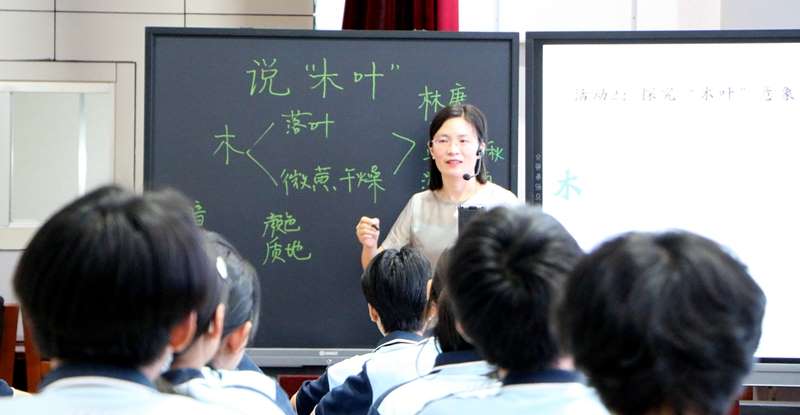 说“木叶”
林庚
落叶
木
秋
微黄、干燥
颜色
质地
音
活动2：探究“木叶”意象
木